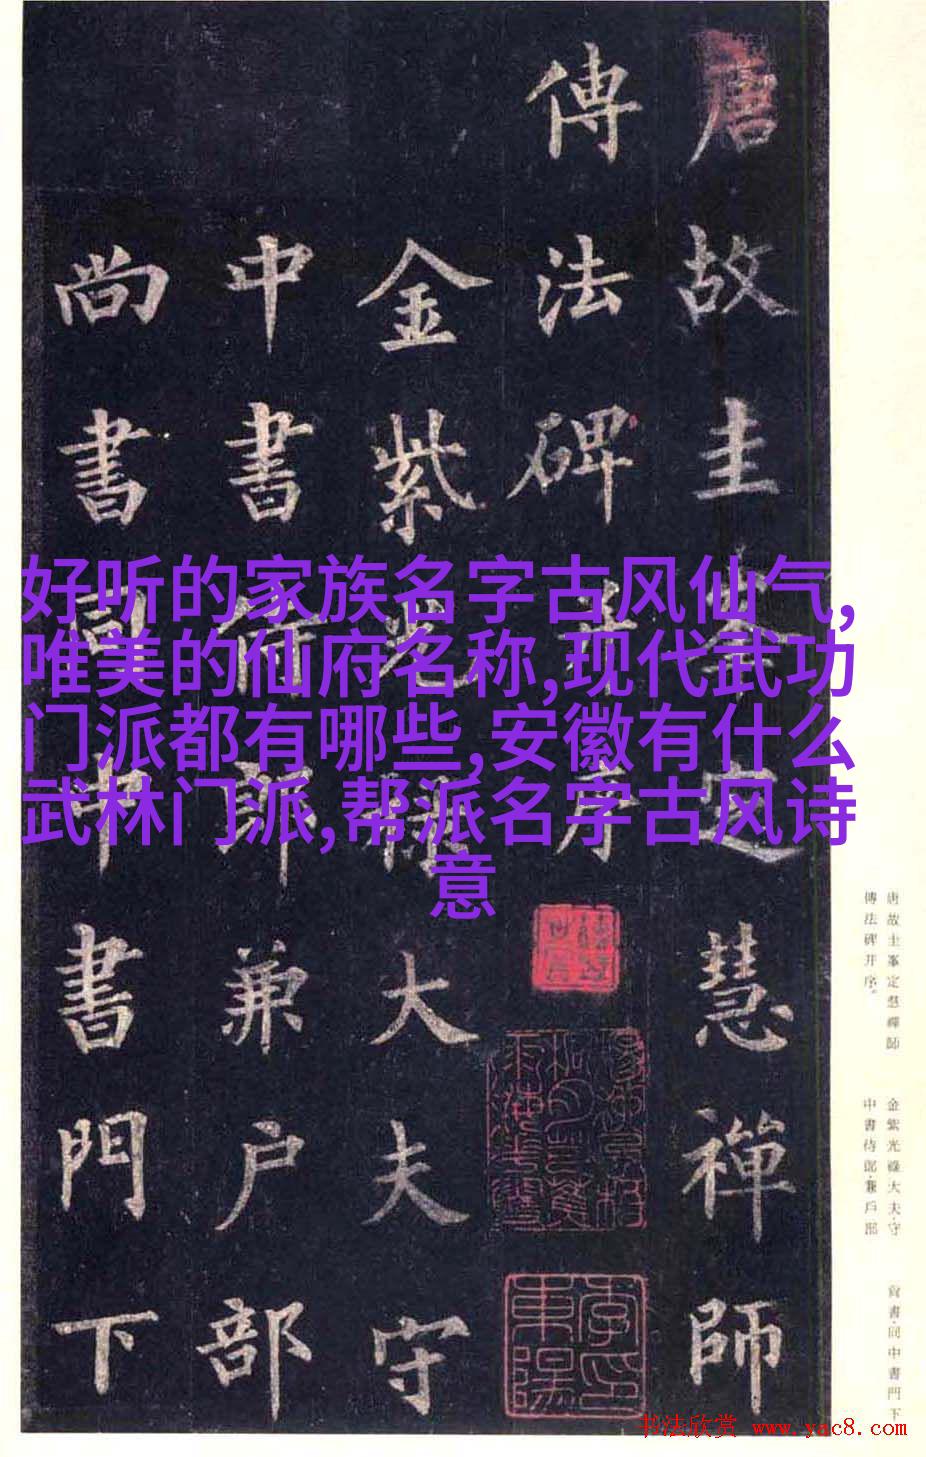 唐故圭峯定慧禪師
傳法碑并序
金紫光祿大夫守
中書侍郎兼户部
尚書同中書門下
好听的家族名字古风仙气,
唯美的仙府名称,现代武功
门派都有哪些,安徽有什么
武林门派,帮派名字古风诗
意
唐故圭峯定慧禪師
傳法碑并序。
金紫光祿大夫·守
中書侍郎·兼戶部
尚書·同中書門下
書法欣赏 www.yac8.com